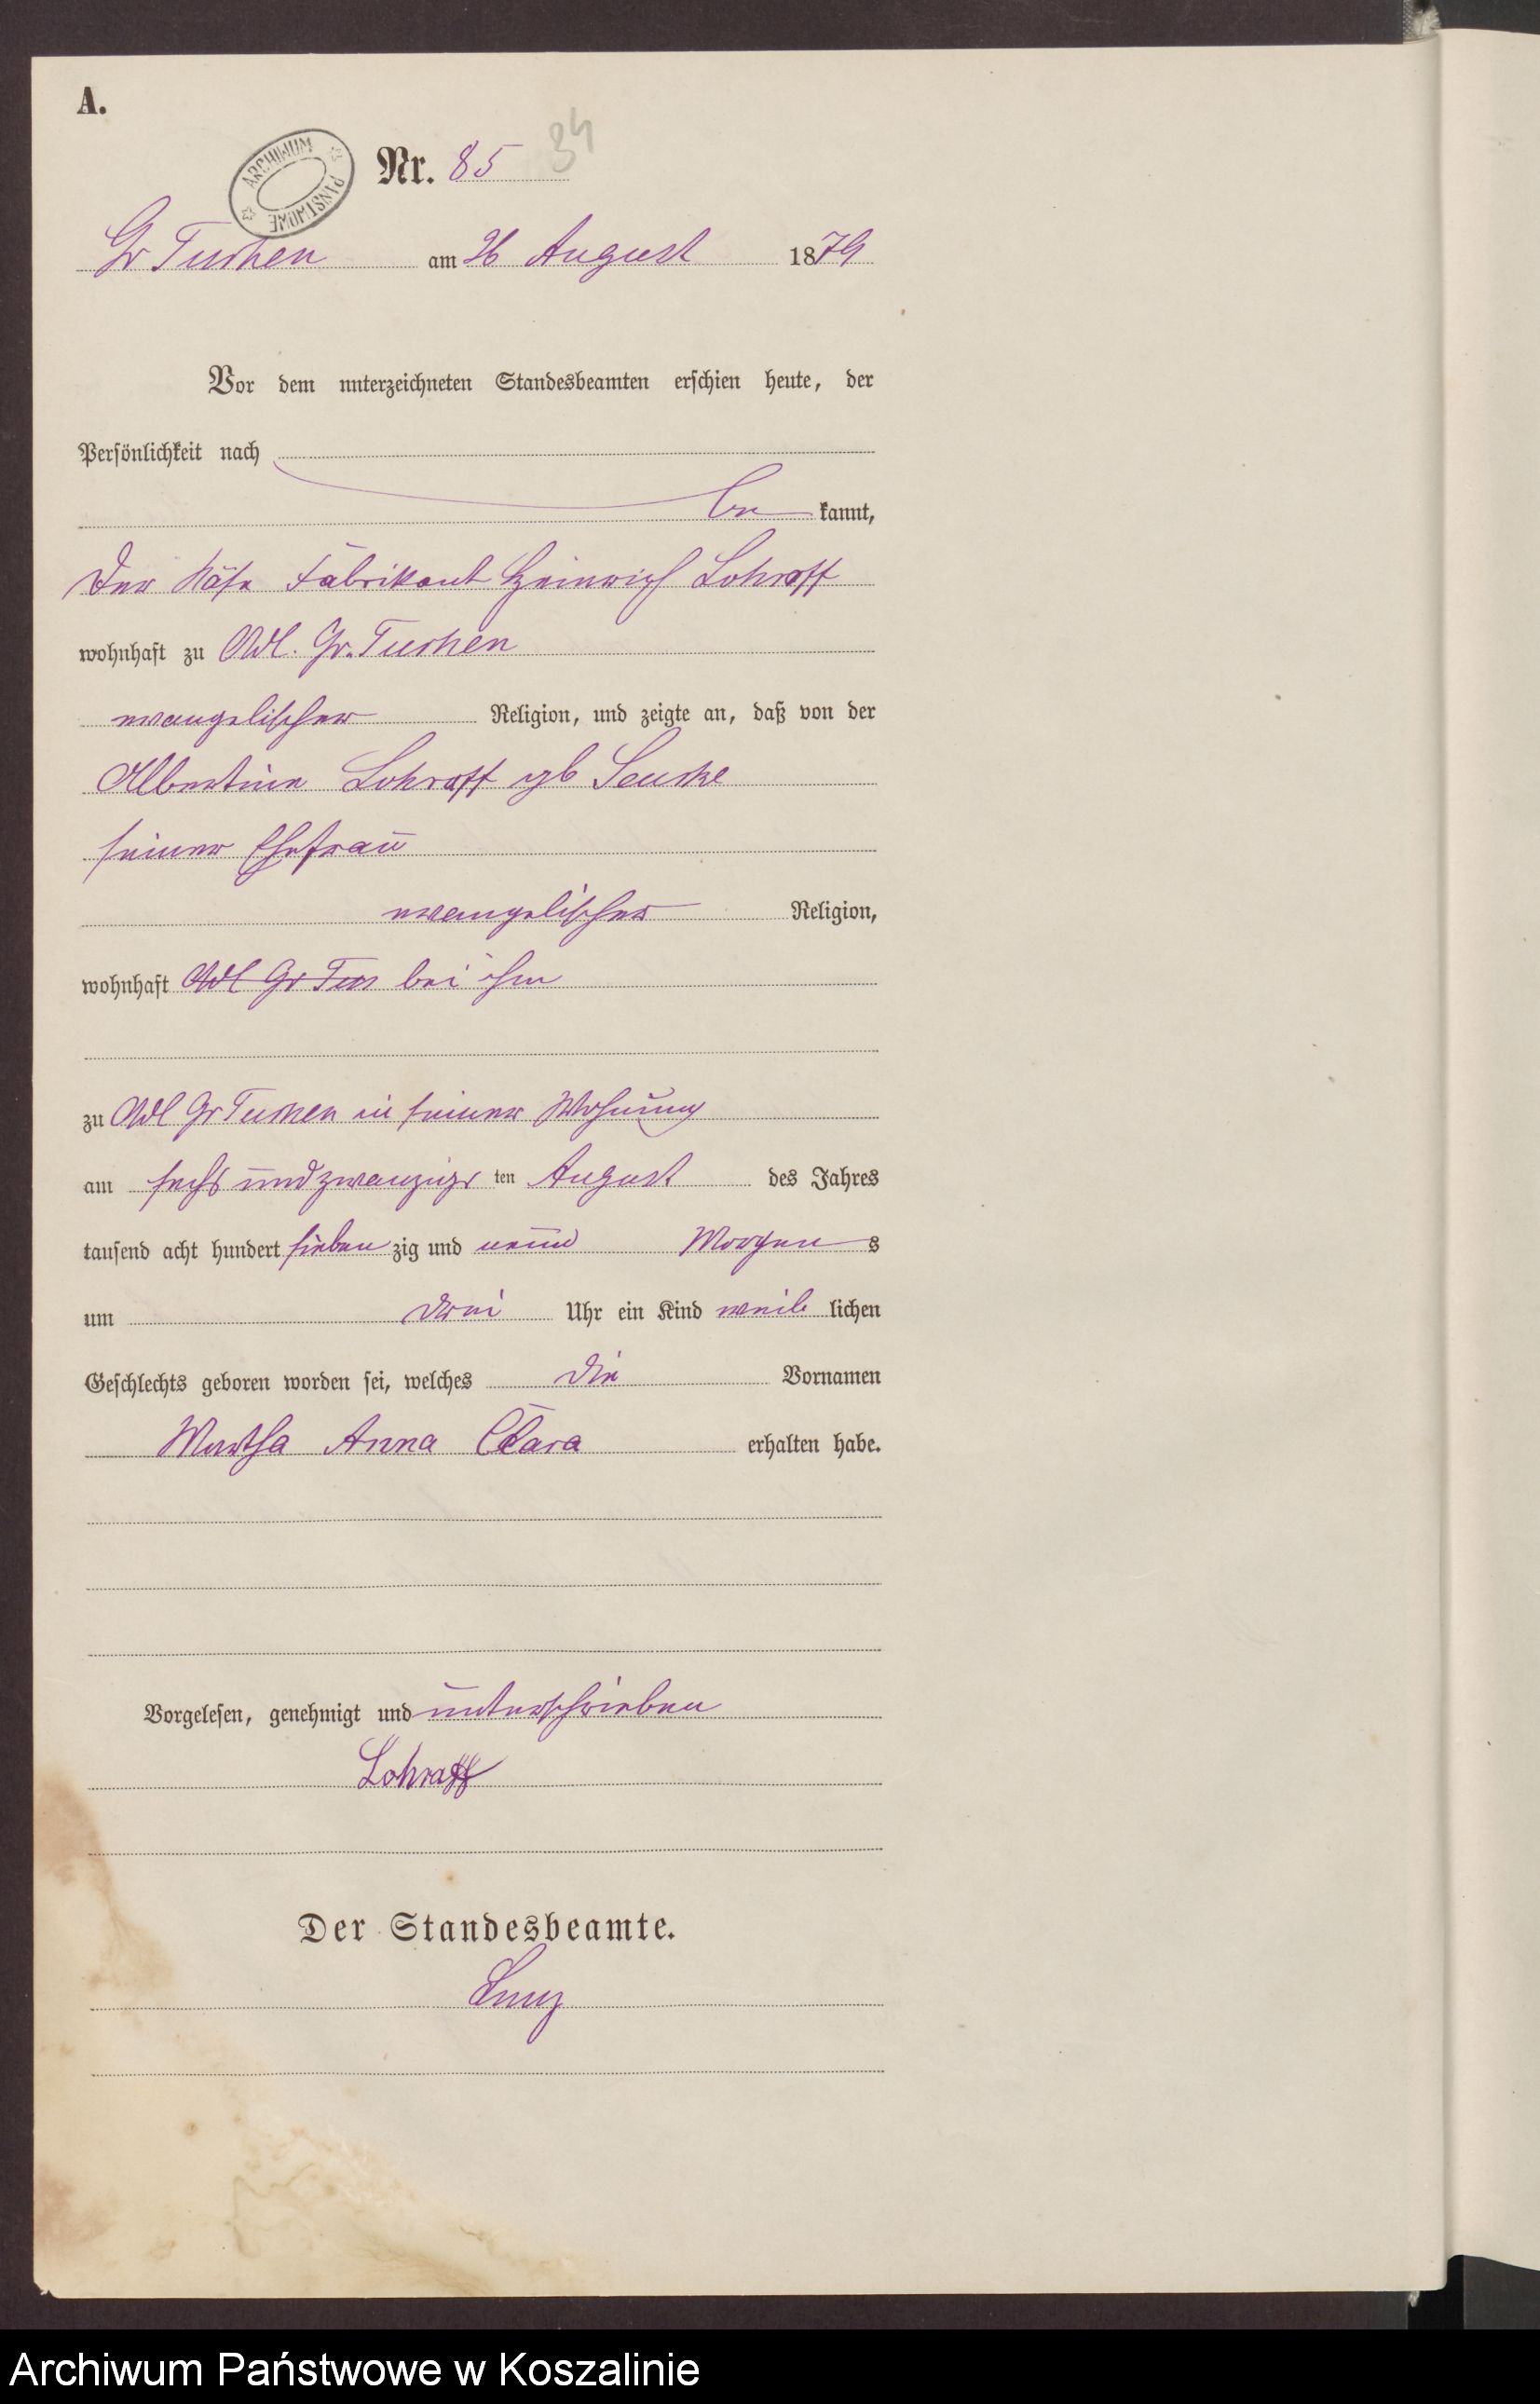 A.
ARCHIWUM PAŃSTWOWE
Nr. 85 34
Gr Tuchen am 26 August 1879
Vor dem unterzeichneten Standesbeamten erschien heute, der
Persönlichkeit nach
be kannt,
Der Käse Fabrikant Heinrich Lohroff
wohnhaft zu Adl. Gr. Tuchen
evangelischer Religion, und zeigte an, daß von der
Albertine Lohroff geb
seiner Ehefrau
evangelischer Religion,
wohnhaft Adl Gr Tuc bei ihm
zu Adl Gr Tuchen in seiner Wohnung
am sechs und zwanzigs ten August des Jahres
tausend acht hundert sieben zig und neun Morgen s
um drei Uhr ein Kind weib lichen
Geschlechts geboren worden sei, welches die Vornamen
Martha Anna Clara erhalten habe.
Vorgelesen, genehmigt und unterschrieben
Lohroff
Der Standesbeamte.
Archiwum Państwowe w Koszalinie